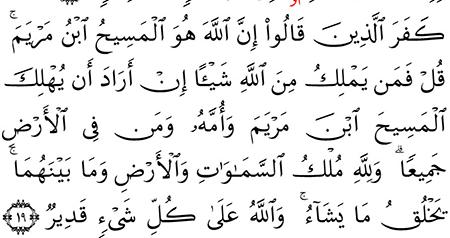 كَفَرَ الَّذِينَ قَالُوا۟ إِنَّ اللَّهَ هُوَ الْمَسِيحُ ابْنُ مَرْيَمَ ۚ
قُلْ فَمَن يَمْلِكُ مِنَ اللَّهِ شَيْـًٔا إِنْ أَرَادَ أَن يُهْلِكَ
الْمَسِيحَ ابْنَ مَرْيَمَ وَأُمَّهُۥ وَمَن فِى الْأَرْضِ
جَمِيعًا ۗ وَلِلَّهِ مُلْكُ السَّمَـٰوَٰتِ وَالْأَرْضِ وَمَا بَيْنَهُمَا ۚ
يَخْلُقُ مَا يَشَآءُ ۚ وَاللَّهُ عَلَىٰ كُلِّ شَىْءٍ قَدِيرٌ ١٩